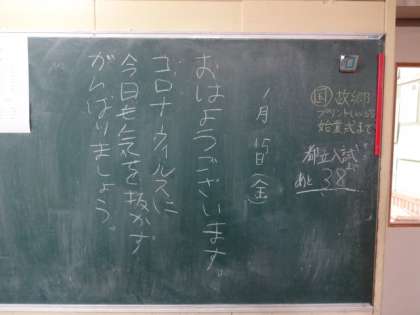 国 故郷
プリント
始業式まで
都立入試まで
あと 38
1月15日(金)
おはようございます。
コロナウイルスに
今日も気を抜かず
がんばりましょう。